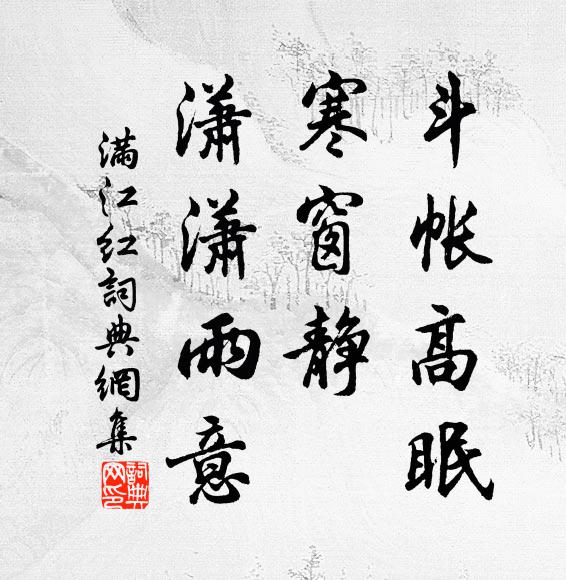 斗帐高眠
寒窗静
潇潇雨意
满江红词典网集
词典网印